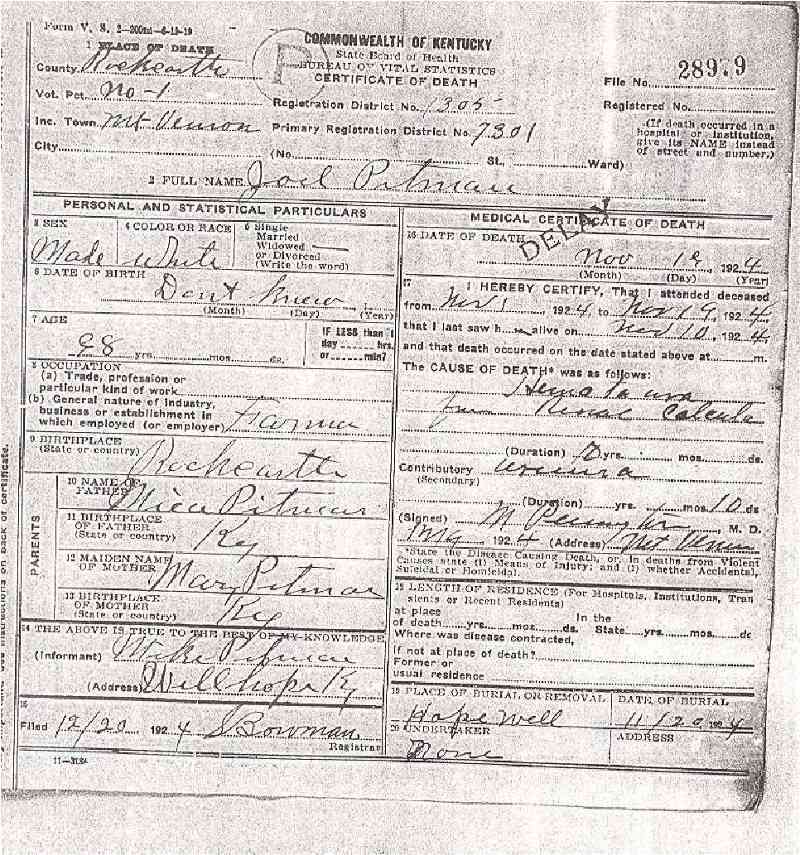 Form V. S. 2-200m-6-19-19
COMMONWEALTH OF KENTUCKY
State Board of Health
BUREAU OF VITAL STATISTICS
CERTIFICATE OF DEATH
P
1 PLACE OF DEATH
County Rockcastle
Vot. Pct. No-1
Inc. Town Mt Vernon
City
Registration District No. 1305
Primary Registration District No. 7301
(No. St., Ward)
File No. 28979
Registered No.
(If death occurred in a
hospital or institution,
give its NAME instead
of street and number.)
2 FULL NAME Joel Pitman
PERSONAL AND STATISTICAL PARTICULARS
3 SEX
Male
4 COLOR OR RACE
White
5 Single
Married
Widowed
or Divorced
(Write the word)
6 DATE OF BIRTH
Dont Know
(Month) (Day) (Year)
7 AGE
98 yrs. mos. ds.
IF LESS than 1
day hrs.
or min?
8 OCCUPATION
(a) Trade, profession or
particular kind of work
(b) General nature of industry,
business or establishment in
which employed (or employer) Farmer
9 BIRTHPLACE
(State or country) Rockcastle
PARENTS
10 NAME OF
FATHER Pitman
11 BIRTHPLACE
OF FATHER
(State or country) Ky
12 MAIDEN NAME
OF MOTHER Mary Pitman
13 BIRTHPLACE
OF MOTHER
(State or country) Ky
14 THE ABOVE IS TRUE TO THE BEST OF MY KNOWLEDGE
(Informant) Mike Pitman
(Address) Willhope Ky
15
Filed 12/20 1924 S Bowman
Registrar
11-3184
MEDICAL CERTIFICATE OF DEATH
DELAY
16 DATE OF DEATH
Nov 19, 1924
(Month) (Day) (Year)
17 I HEREBY CERTIFY, That I attended deceased
from Nov 1 1924 to Nov 19 1924
that I last saw h alive on Nov 10 1924
and that death occurred on the date stated above at m.
The CAUSE OF DEATH* was as follows:
Hematuria
from Renal Calcula
(Duration) yrs. mos. ds.
Contributory
(Secondary)
(Duration) yrs. mos. 10 ds
(Signed) M Pennington, M. D.
1924 (Address) Mt Vernon
*State the Disease Causing Death, or, in deaths from Violent
Causes state (1) Means of Injury; and (2) whether Accidental,
Suicidal or Homicidal.
18 LENGTH OF RESIDENCE (For Hospitals, Institutions, Tran
sients or Recent Residents)
at place In the
of death yrs. mos. ds. State yrs. mos. ds
Where was disease contracted,
if not at place of death?
Former or
usual residence
19 PLACE OF BURIAL OR REMOVAL
Hope Well
DATE OF BURIAL
11/20 1924
20 UNDERTAKER
None
ADDRESS
instructions on back of certificate.